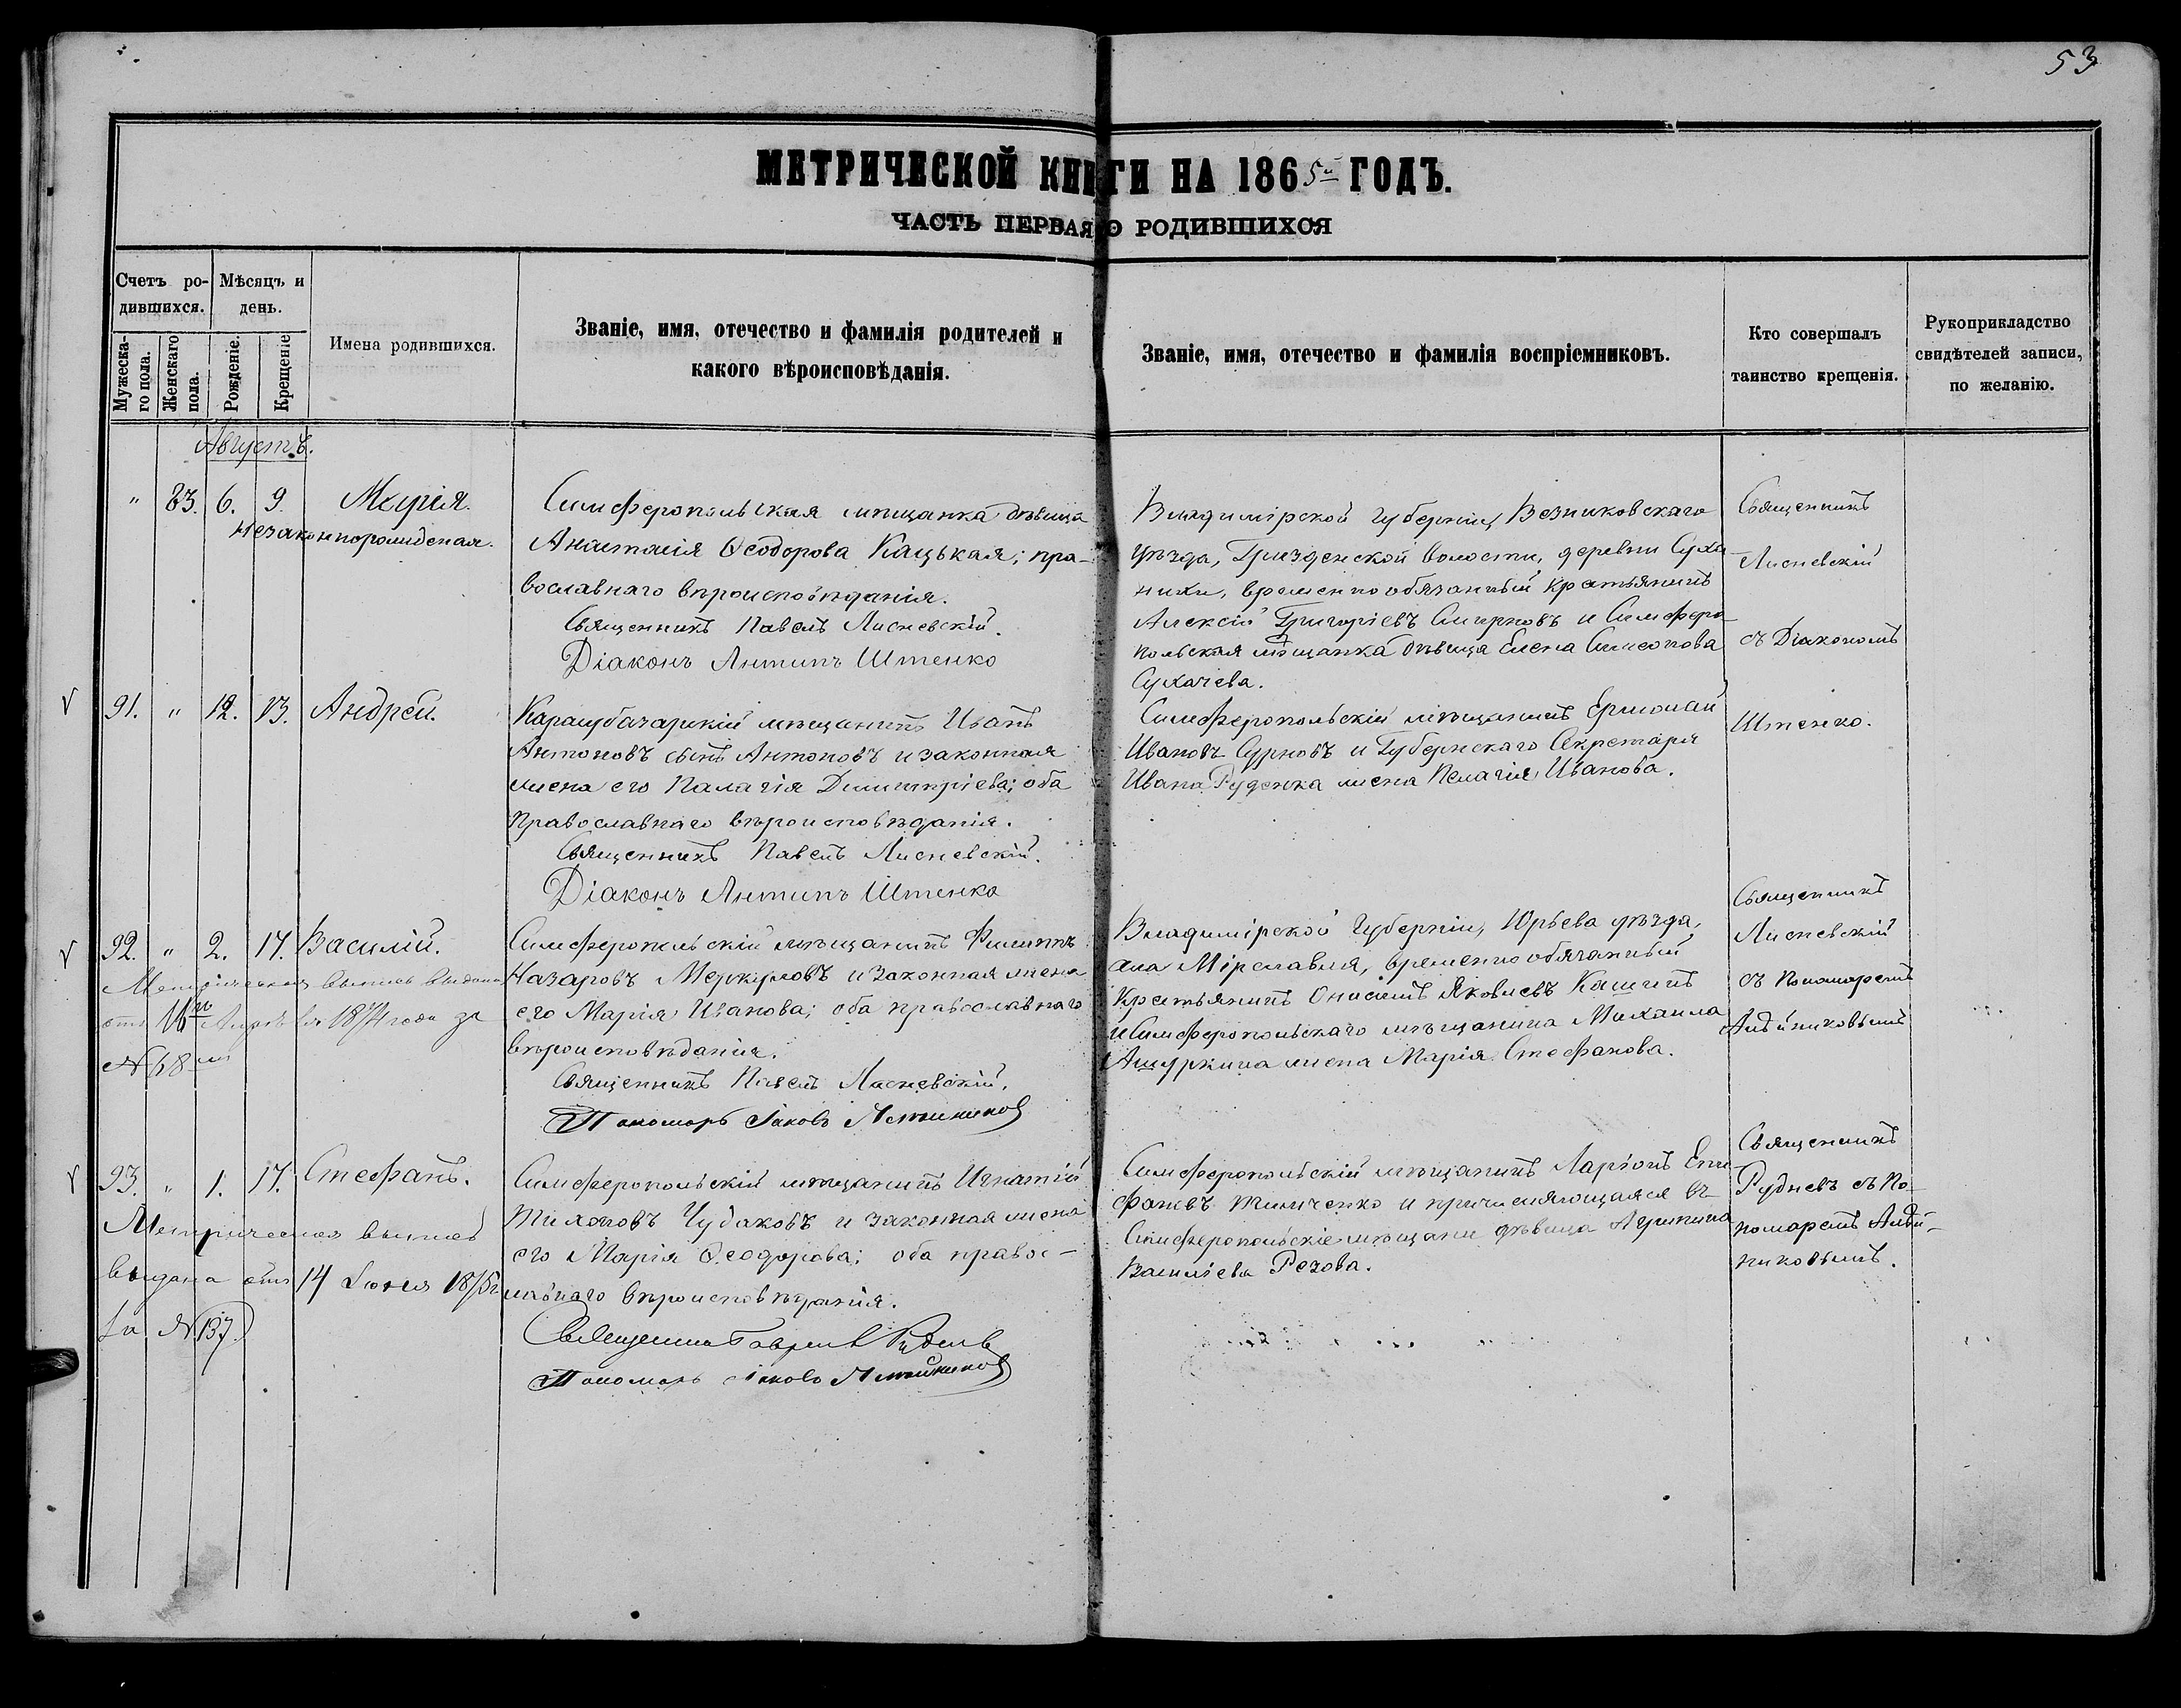 53
МЕТРИЧЕСКОЙ КНИГИ НА 1865й ГОДЪ.
ЧАСТЬ ПЕРВАЯ О РОДИВШИХСЯ
Счетъ ро-
дившихся.
Мужеска-
го пола.
Женскаго
пола.
Мѣсяцъ и
день.
Рожденіе.
Крещеніе
Имена родившихся.
Званіе, имя, отечество и фамилія родителей и
какого вѣроисповѣданія.
Званіе, имя, отечество и фамилія воспріемниковъ.
Кто совершалъ
таинство крещенія.
Рукоприкладство
свидѣтелей записи,
по желанію.
Августъ.
" 83. 6. 9. Марія.
Незаконнорожденая.
Симферопольская мѣщанка дѣвица
Анастасія Ѳеодорова Кацькая; пра-
вославнаго вѣроисповѣданія.
Священникъ Павелъ Лисневскій.
Діаконъ Антипъ Штенко
Владимірской губерніи, Везниковскаго
уѣзда, волости, деревни Суха
нихи, временнообязанный крестьянинъ
Алексій Григоріевъ Смирновъ и Симферо-
польская мѣщанка дѣвица Елена Симеонова
Сухачева.
Священникъ
Лисневскій
съ Діакономъ
Штенко.
91. " 12. 13. Андрей.
Карасубазарскій мѣщанинъ Иванъ
Антоновъ сынъ Антоновъ и законная
жена его Палагія Димитріева; оба
православнаго вѣроисповѣданія.
Священникъ Павелъ Лисневскій.
Діаконъ Антипъ Штенко
Симферопольскій мѣщанинъ Ермолай
Ивановъ Сурновъ и Губернскаго Секретаря
Ивана Руденка жена Пелагія Иванова.
92. " 2. 17. Василій.
Метрическая выпись выдана
отъ 16го Апрѣля 1874 года за
№ 68 мъ
Симферопольскій мѣщанинъ Филиппъ
Назаровъ Меркуловъ и законная жена
его Марія Иванова; оба православнаго
вѣроисповѣданія.
Священникъ Павелъ Лисневскій.
Пономарь Іаковъ
Владимірской Губерніи, Юрьева уѣзда,
села Мірславля, временнообязанный
крестьянинъ Онисимъ Яковлевъ Кашинъ
и Симферопольскаго мѣщанина Михаила
Ашуркина жена Марія Стефанова.
Священникъ
Лисневскій
съ Пономаремъ
93. " 1. 17. Стефанъ.
Метрическая выпись
выдана отъ 14 Іюня 1875г
за № 137.
Симферопольскій мѣщанинъ Игнатій
Тихоновъ Чудаковъ и законная жена
его Марія Ѳеодорова; оба правос-
лавнаго вѣроисповѣданія.
Священникъ Гавріилъ Рудневъ
Пономарь Іаковъ
Симферопольскій мѣщанинъ Ларіонъ Епи-
фановъ Тимченко и причисляющаяся въ
Симферопольскіе мѣщане дѣвица Агрипина
Василіева Резова.
Священникъ
Рудневъ съ По-
номаремъ